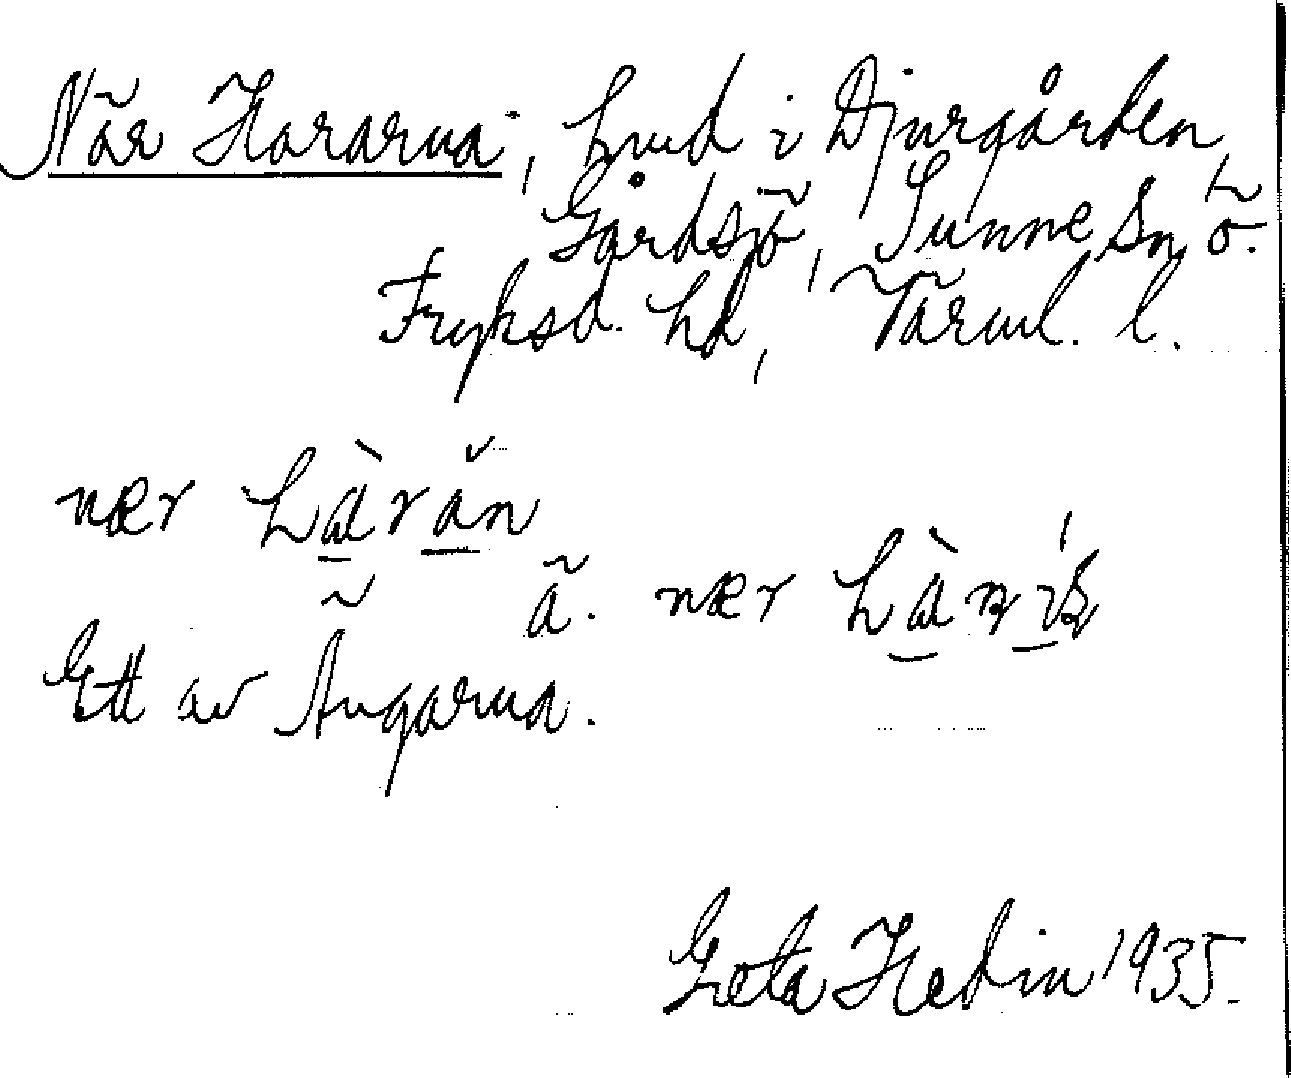 När Hararna, hmd i Djurgården,
Gårdsjö, Sunne sn, ö.
Fryksd. hd, Värml. l.
nær
ä. nær
Ett av Ängarna.
Greta Hedin 1935.